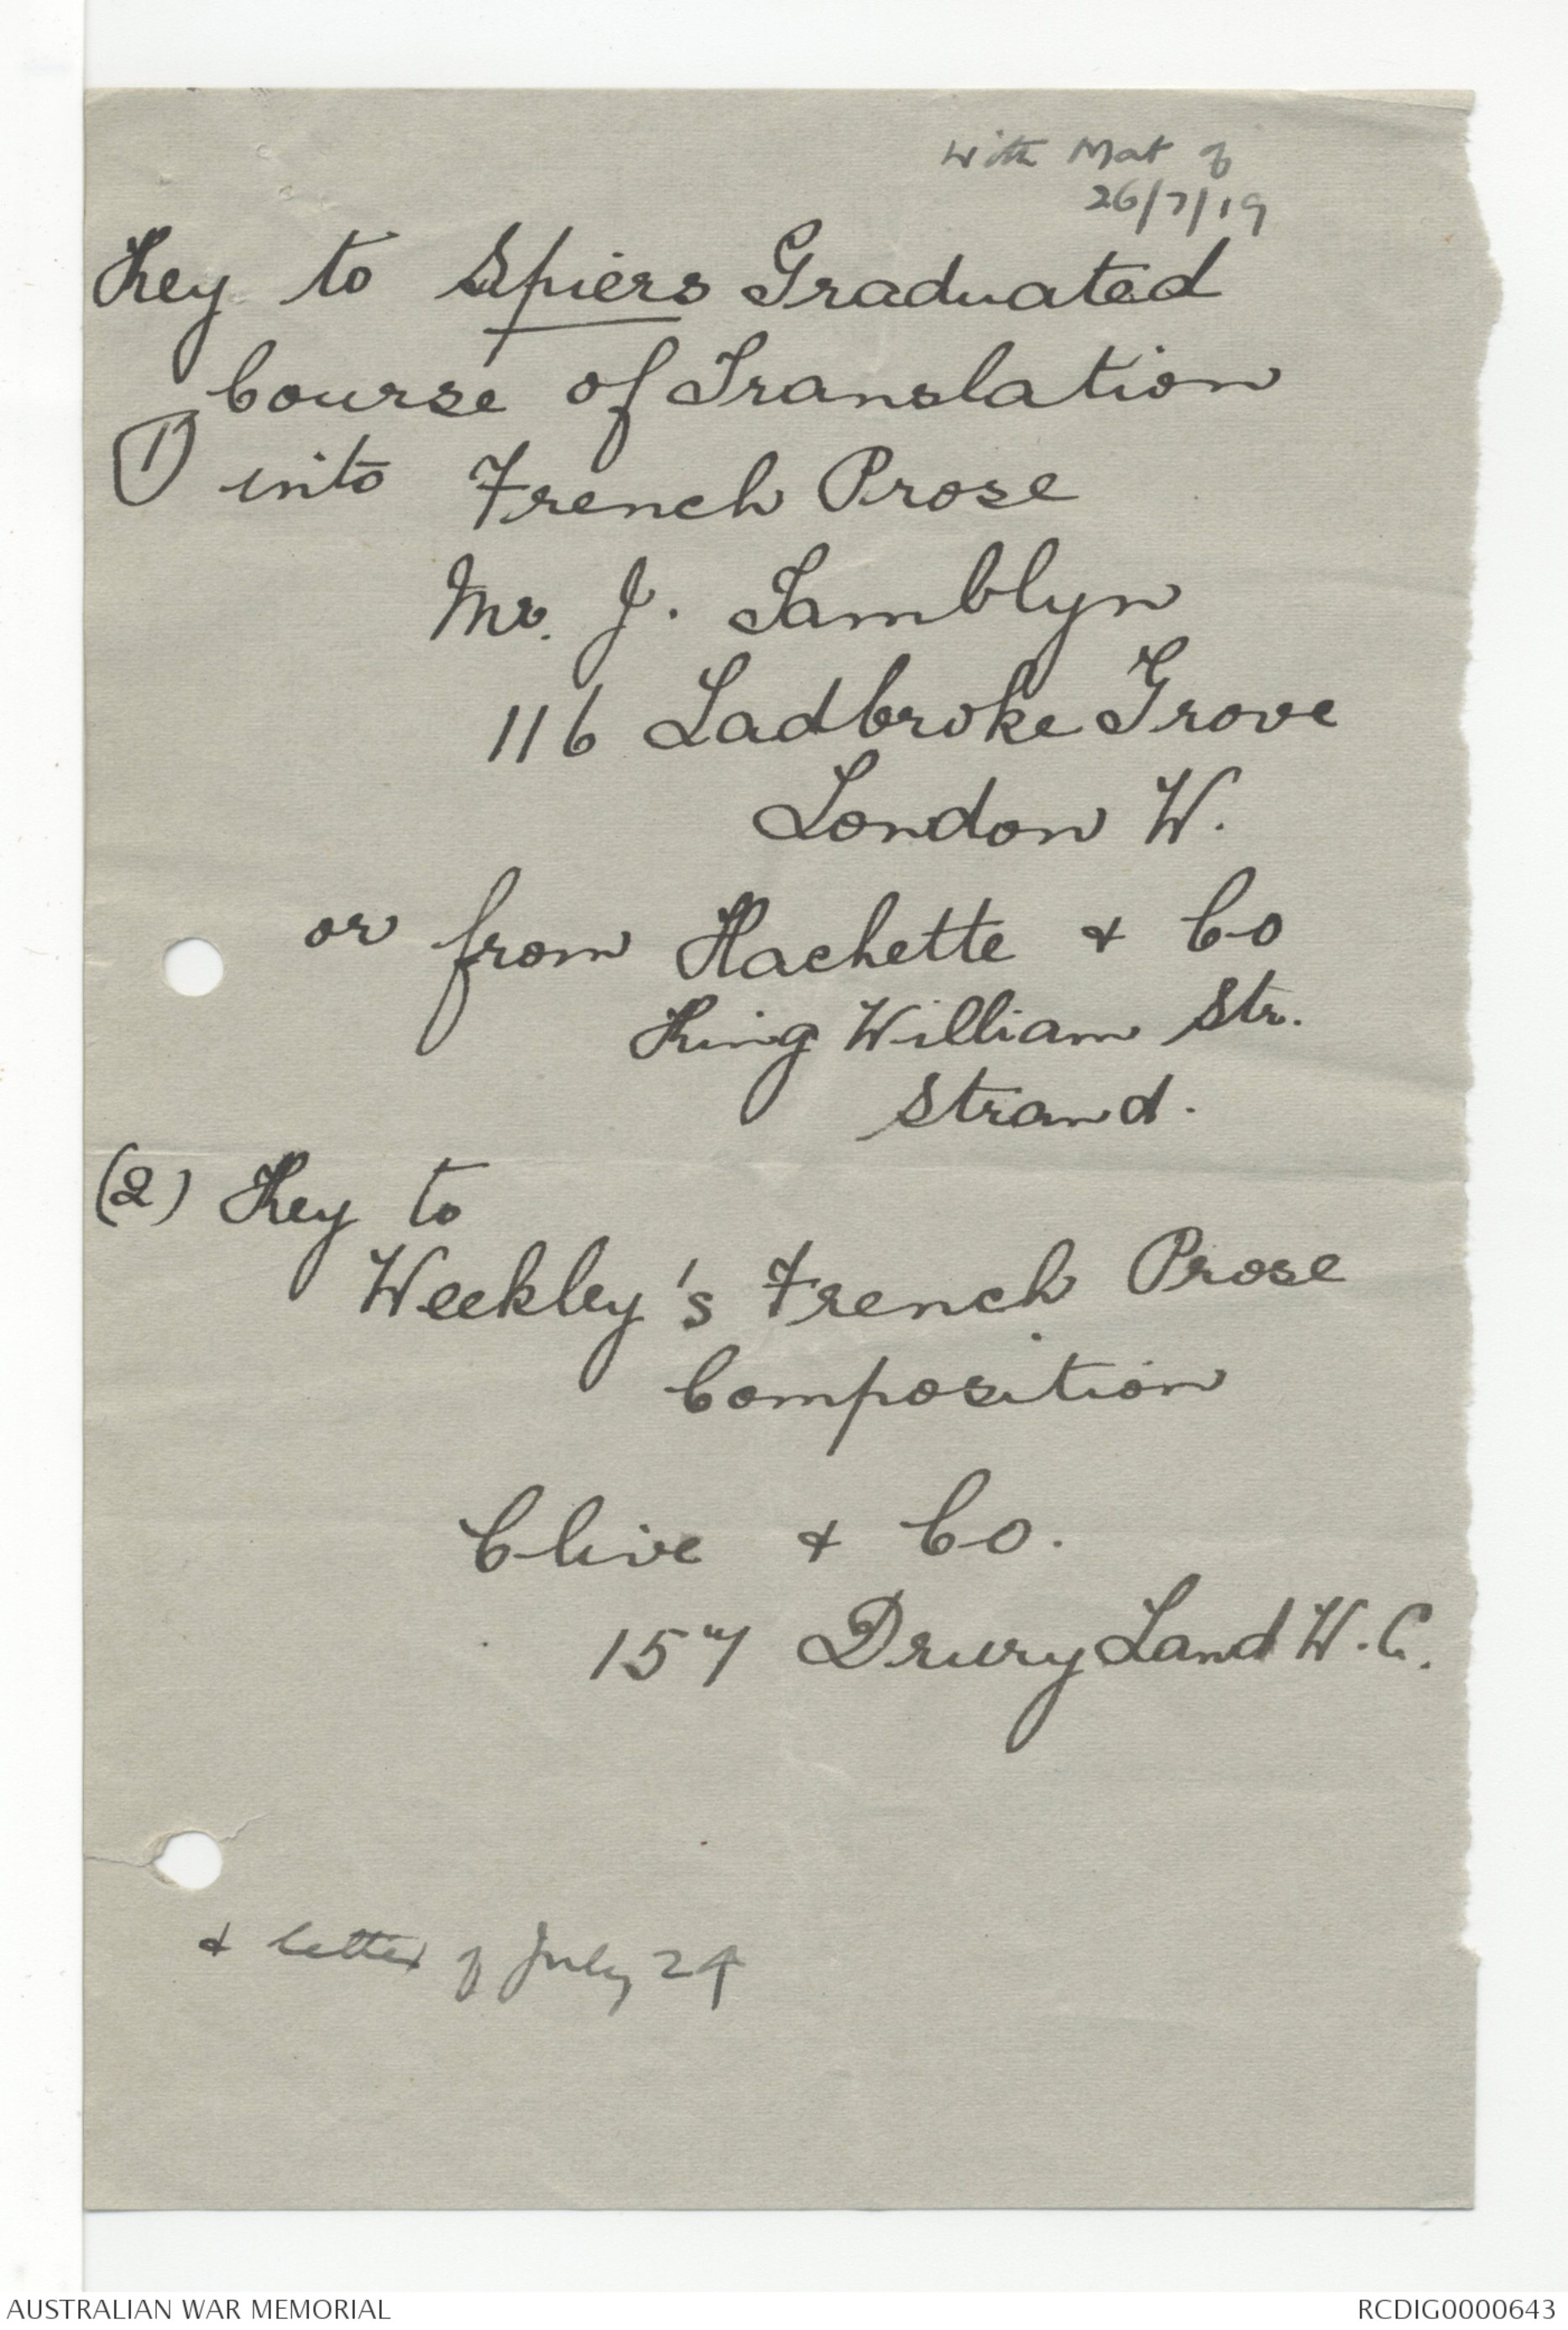 with Mat of
26/7/19
Key to Spiers Graduated
Course of Translation
(1) into French Prose
Mr. J. Tamblyn
116 Ladbroke Grove
London W.
or from Hachette & Co
King William Str.
Strand.
(2) Key to
Weekley's French Prose
Composition
Clive & Co.
157 Drury Land W.C.
& letter of July 24
AUSTRALIAN WAR MEMORIAL
RCDIG0000643